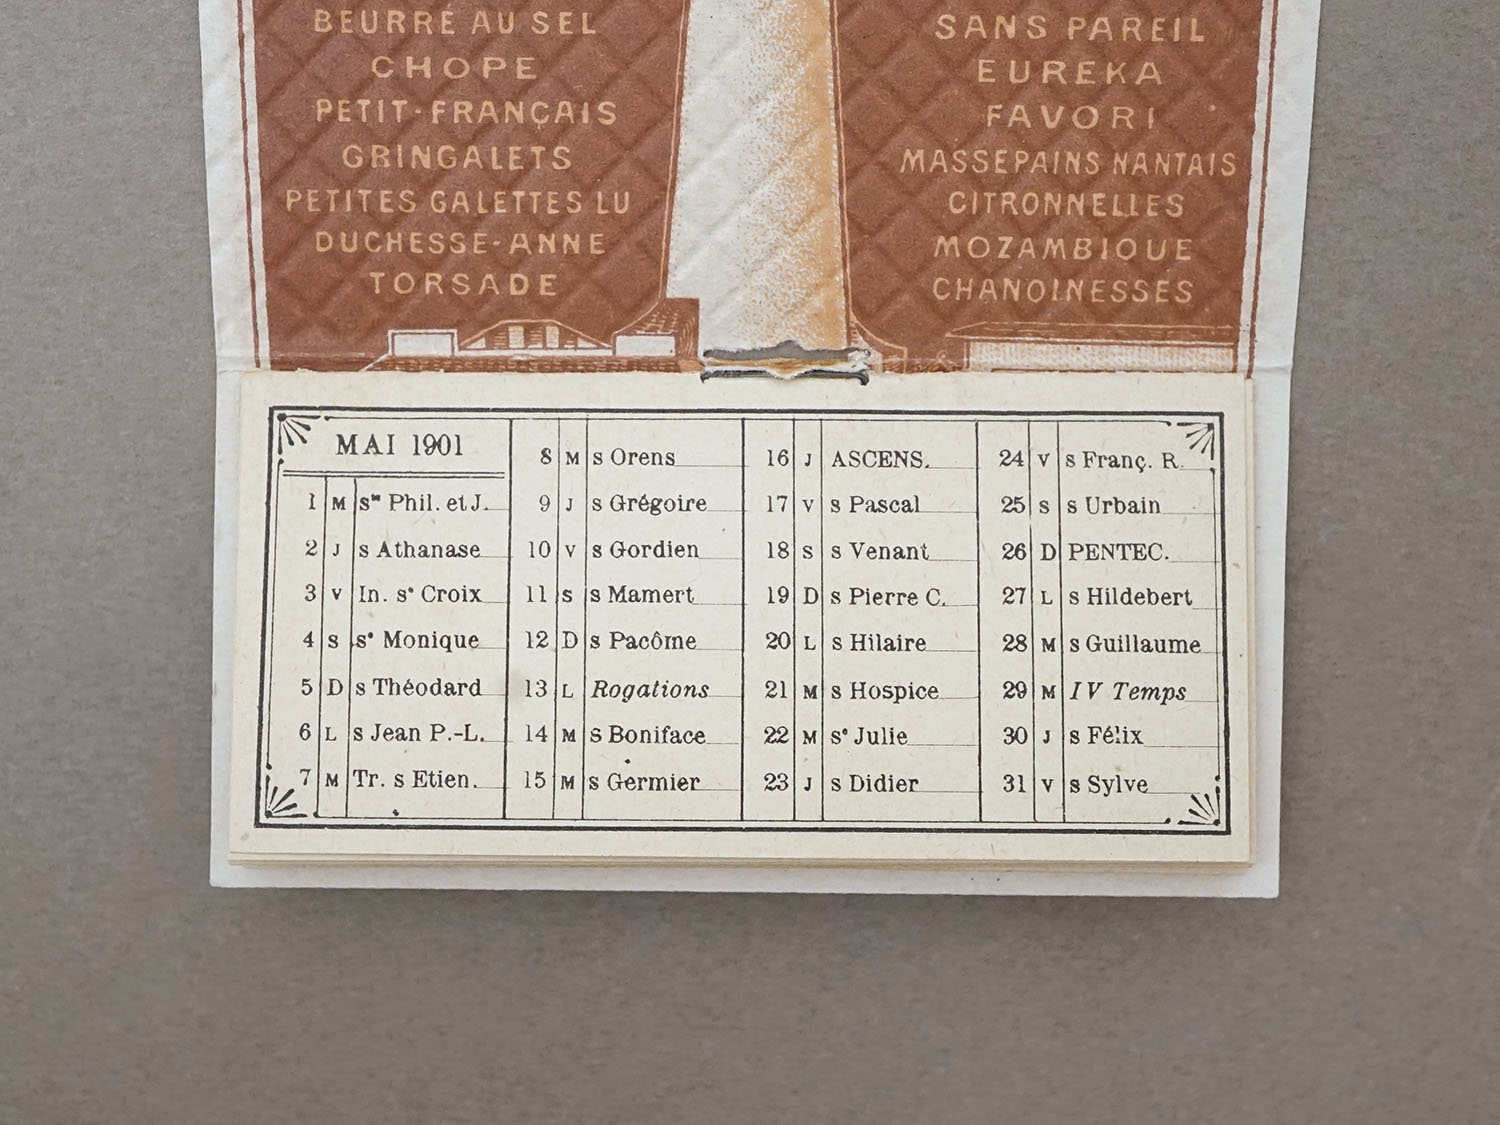 BEURRÉ AU SEL
CHOPE
PETIT-FRANÇAIS
GRINGALETS
PETITES GALETTES LU
DUCHESSE-ANNE
TORSADE
SANS PAREIL
EUREKA
FAVORI
MASSEPAINS NANTAIS
CITRONNELLES
MOZAMBIQUE
CHANOINESSES
MAI 1901
1 M sts Phil. et J.
2 J s Athanase
3 V In. se Croix
4 S se Monique
5 D s Théodard
6 L s Jean P.-L.
7 M Tr. s Etien.
8 M s Orens
9 J s Grégoire
10 V s Gordien
11 S s Mamert
12 D s Pacôme
13 L Rogations
14 M s Boniface
15 M s Germier
16 J ASCENS.
17 V s Pascal
18 S s Venant
19 D s Pierre C.
20 L s Hilaire
21 M s Hospice
22 M se Julie
23 J s Didier
24 V s Franç. R.
25 S s Urbain
26 D PENTEC.
27 L s Hildebert
28 M s Guillaume
29 M IV Temps
30 J s Félix
31 V s Sylve